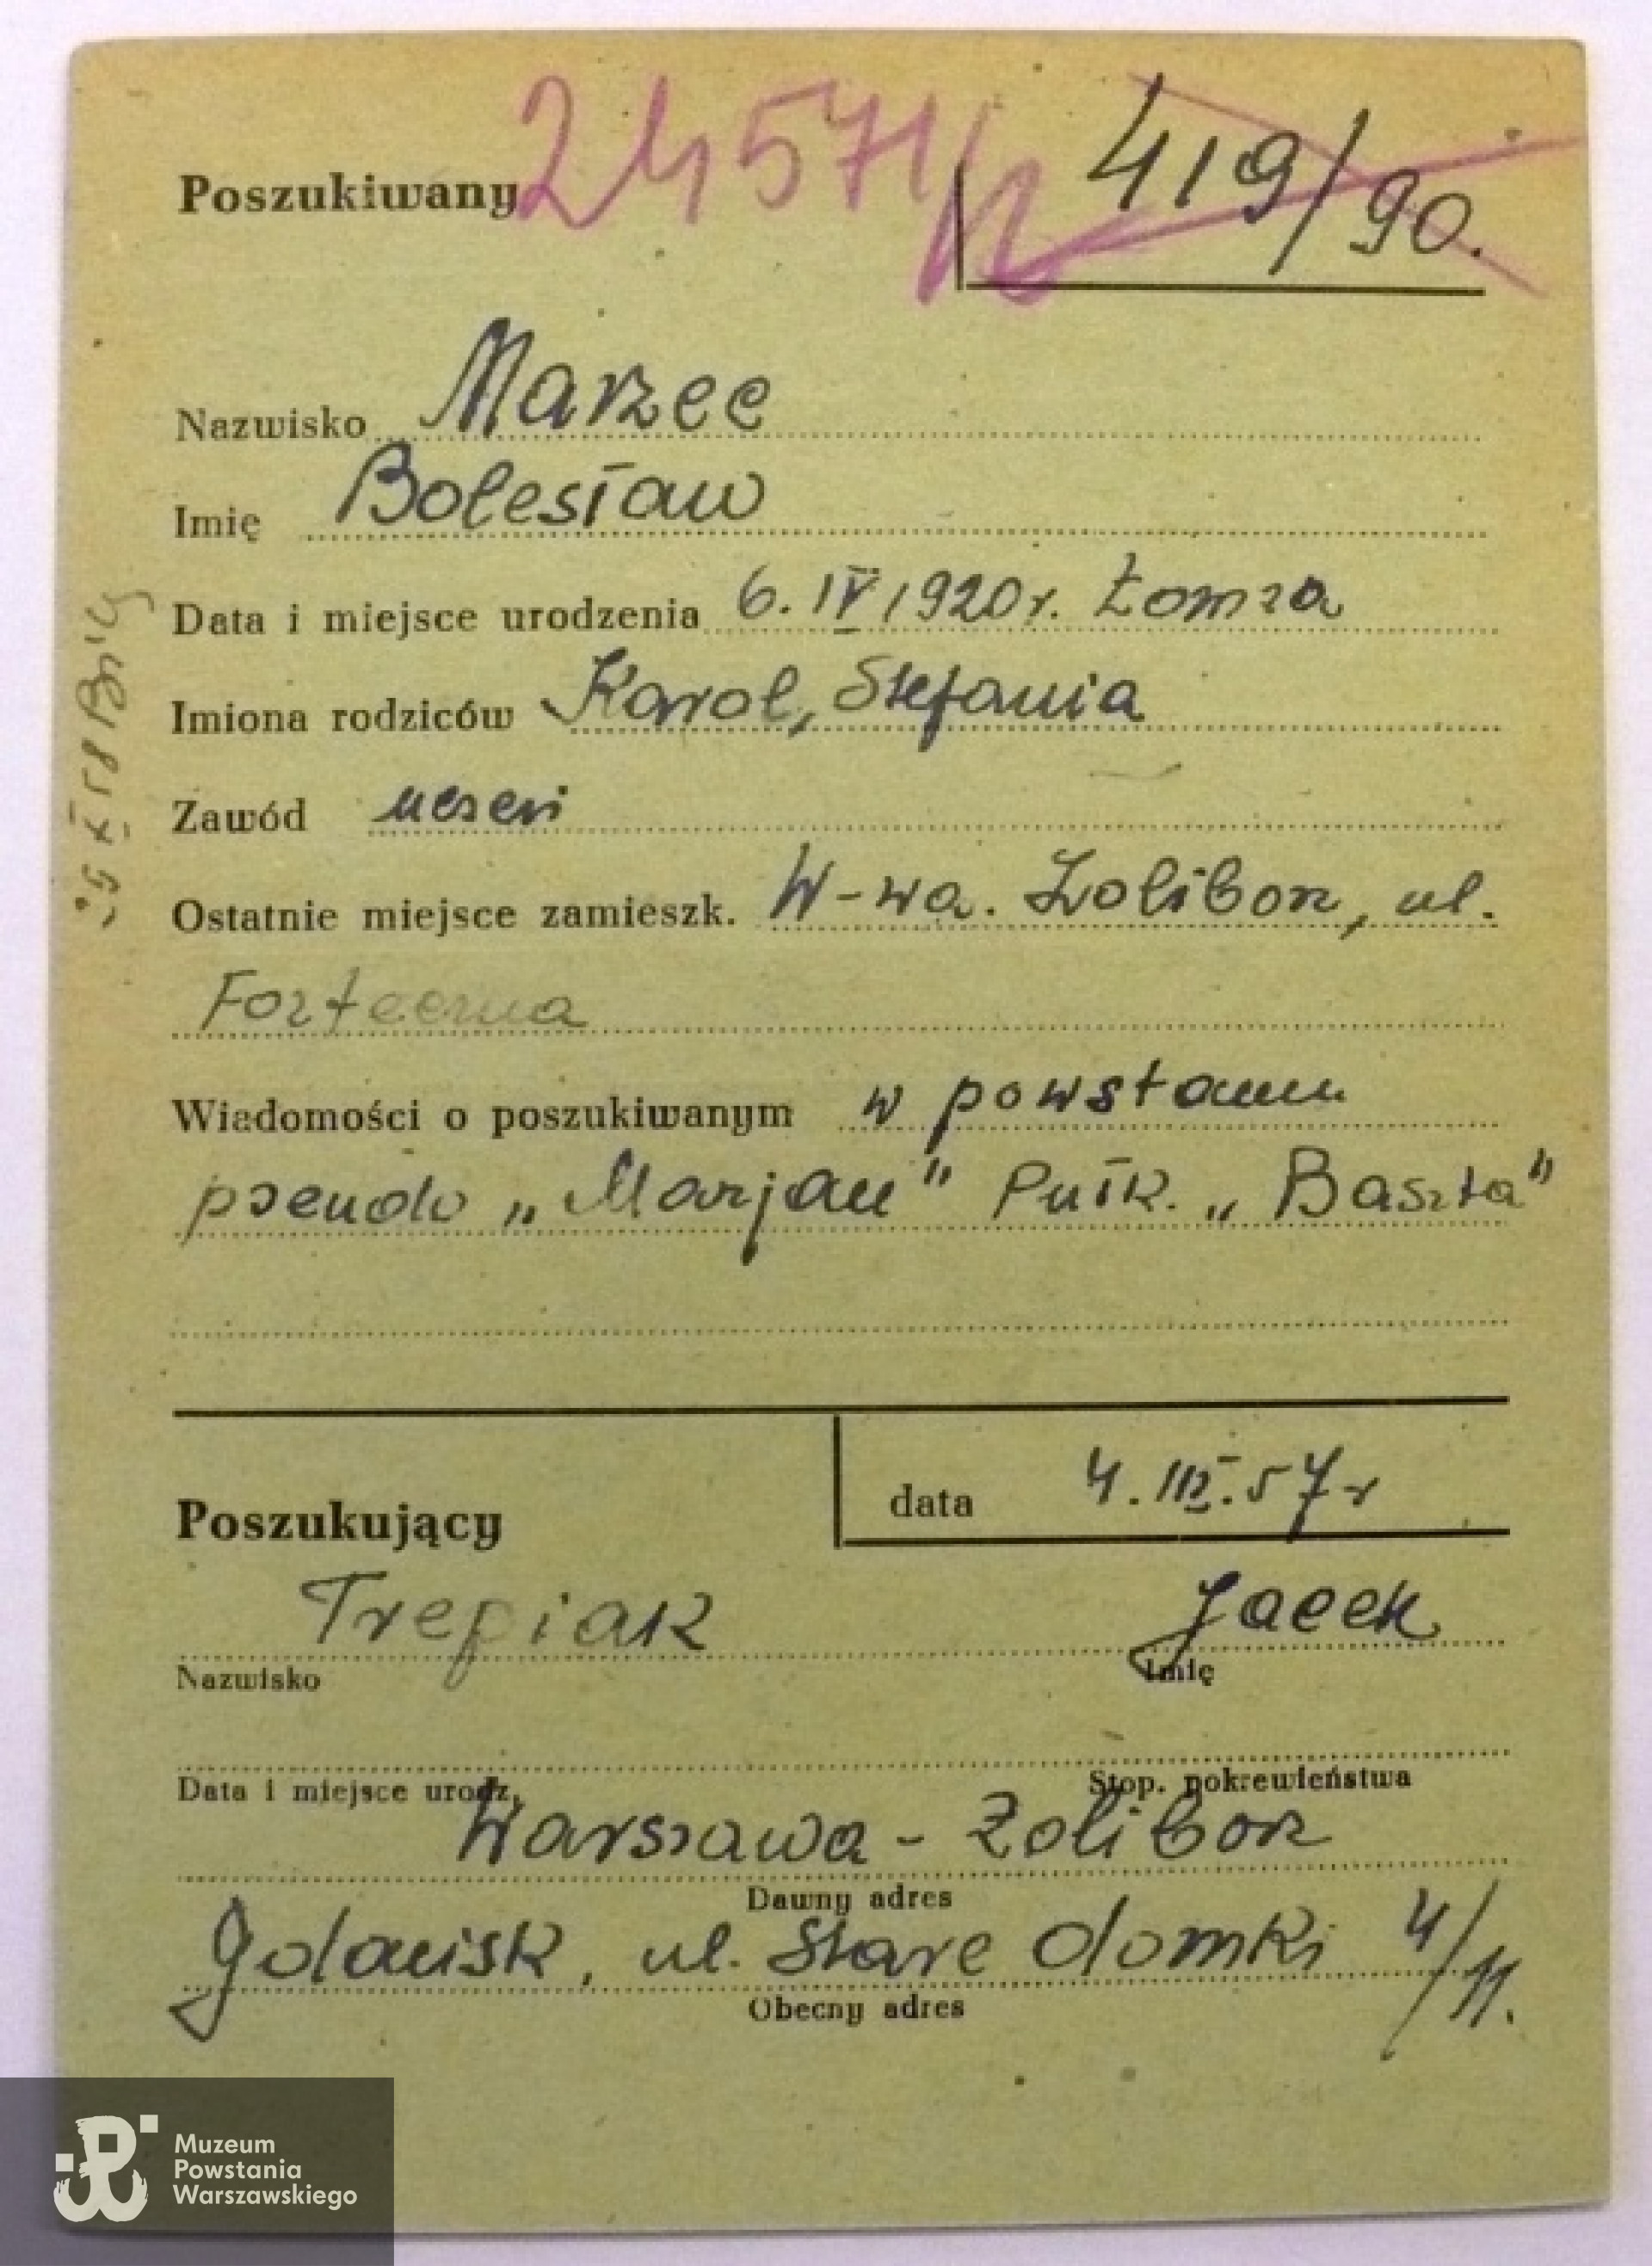 Poszukiwany
419/90.
Nazwisko Marzec
Imię Bolesław
Data i miejsce urodzenia 6. IV 1920 r. Łomża
Imiona rodziców Karol, Stefania
Zawód uczeń
Ostatnie miejsce zamieszk. W-wa. Żoliborz, ul.
Forteczna
Wiadomości o poszukiwanym w powstaniu
pseudo „Marjan” Pułk. „Baszta”
Poszukujący
data 4. III. 57 r
Trepiak Jacek
Nazwisko Imię
Data i miejsce urodz. Stop. pokrewieństwa
Warszawa - Żoliborz
Dawny adres
Gdańsk, ul. Stare domki 4/11.
Obecny adres
Muzeum
Powstania
Warszawskiego